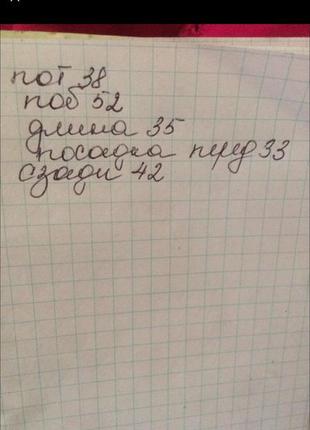 пот 38
поб 52
длина 35
посадка перед 33
сзади 42